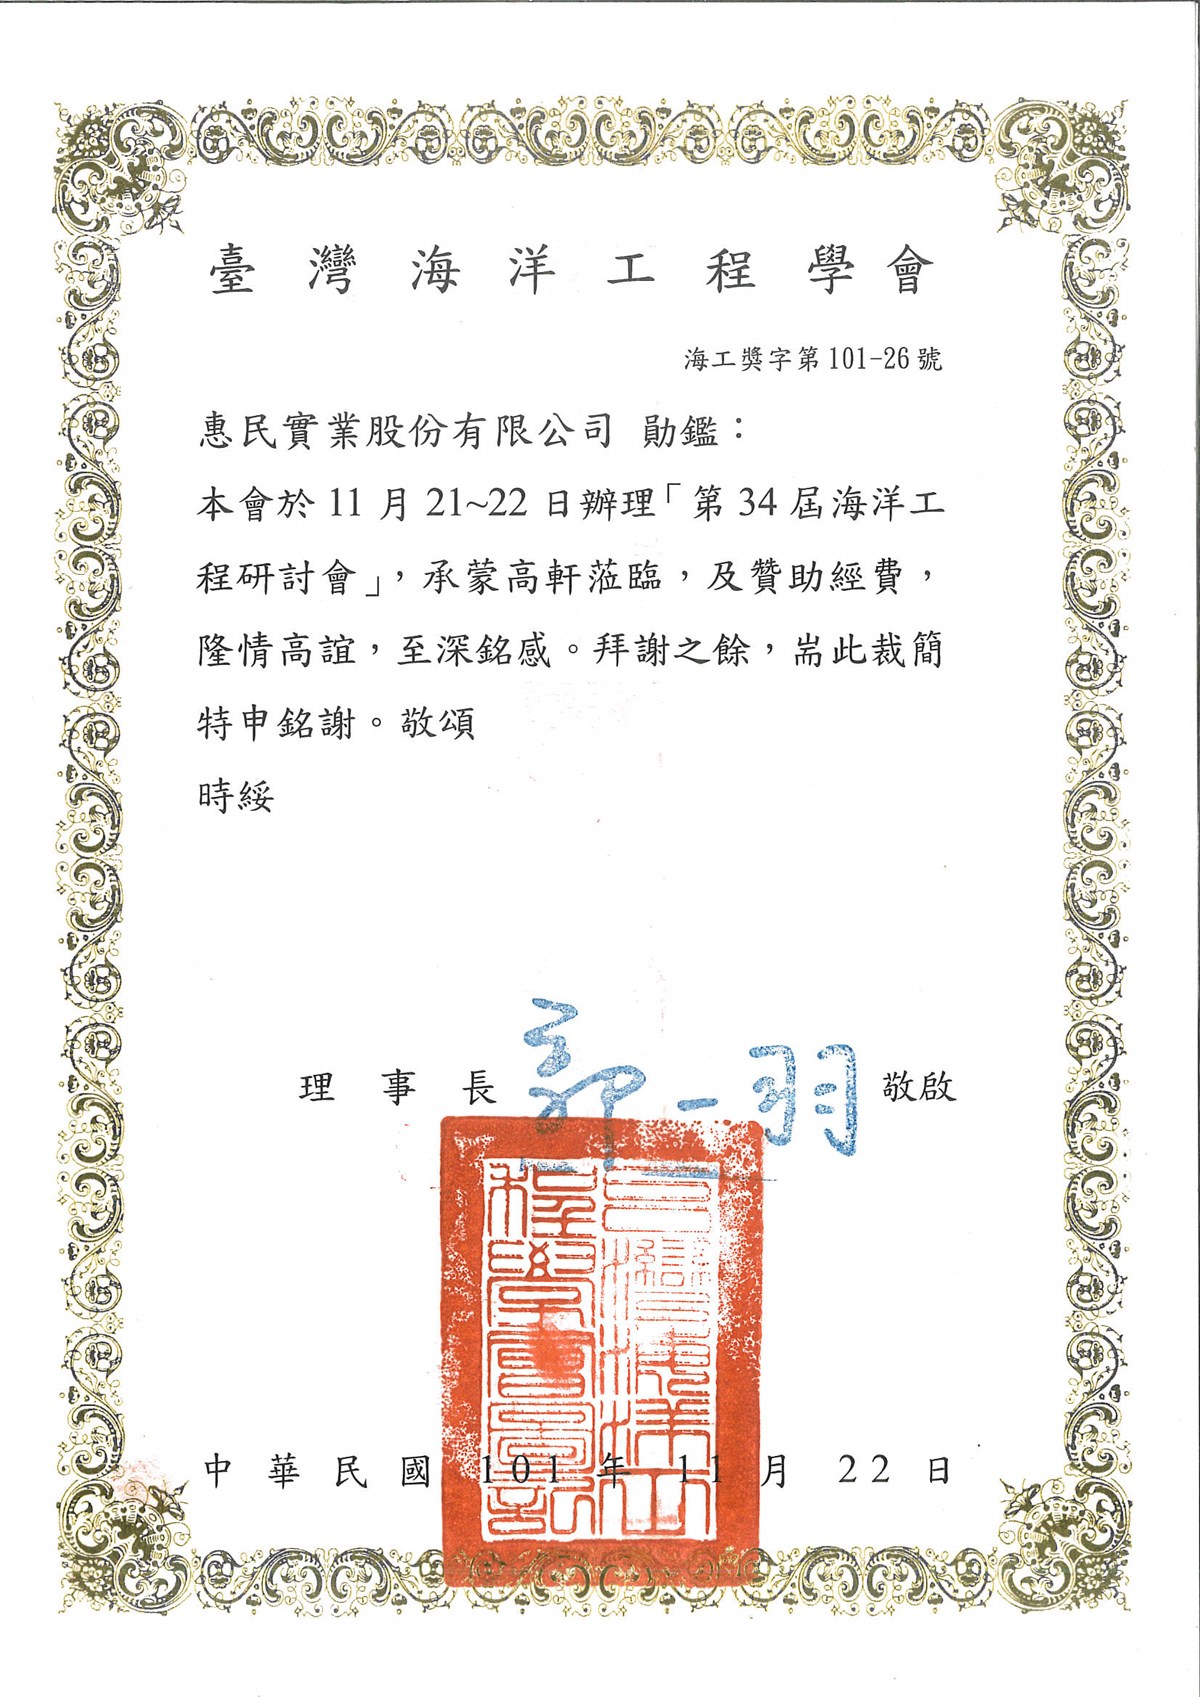 臺灣海洋工程學會
海工獎字第101-26號
惠民實業股份有限公司 勛鑑：
本會於11月21~22日辦理「第34屆海洋工
程研討會」，承蒙高軒蒞臨，及贊助經費，
隆情高誼，至深銘感。拜謝之餘，耑此裁簡
特申銘謝。敬頌
時綏
理事長 郭一羽 敬啟
臺灣海洋工
程學會圖記
中華民國101年11月22日